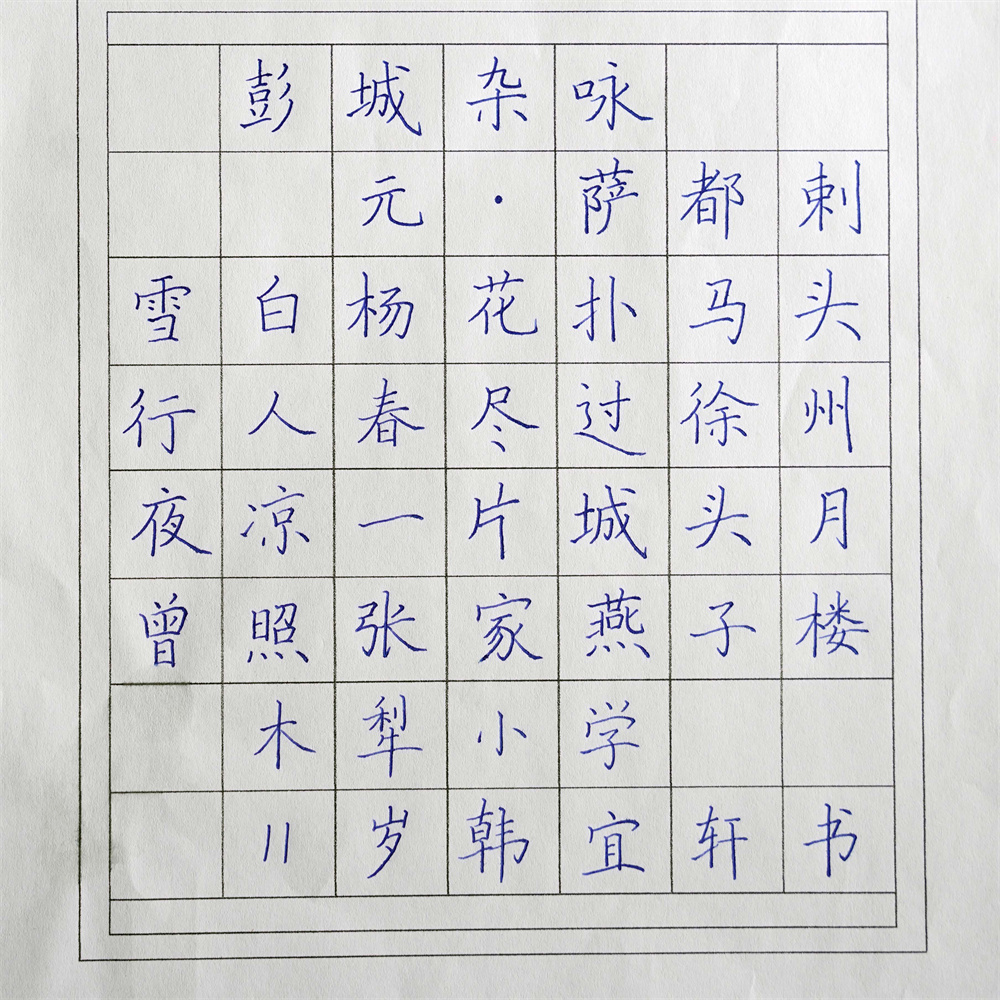 彭城杂咏
元·萨都剌
雪白杨花扑马头
行人春尽过徐州
夜凉一片城头月
曾照张家燕子楼
木犁小学
11岁韩宜轩书